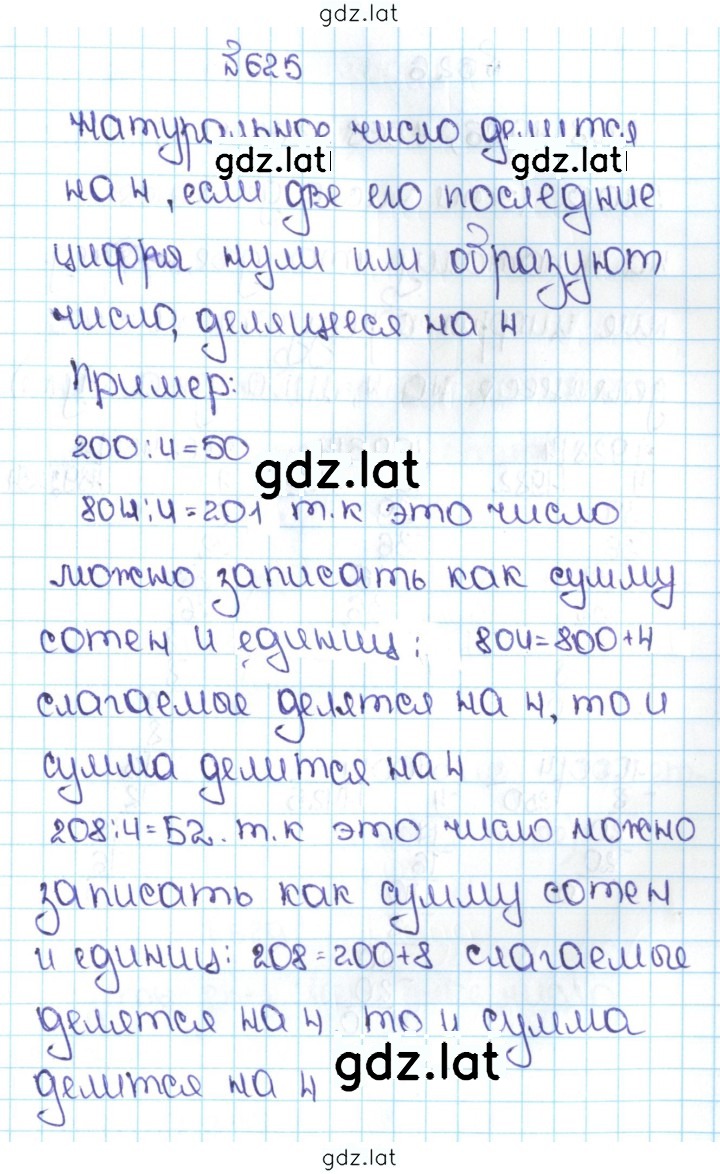 gdz.lat
№625
натурольного число делится
gdz.lat gdz.lat
на 4, если две его последние
цифря нули или образуют
число, делящееся на 4
Пример:
200:4=50
gdz.lat
804:4=201 т.к это число
можно записать как сумму
сотен и единиц: 804=800+4
слагаемые делятся на 4, то и
сумма делится на 4
208:4=52. т.к это число можно
записать как сумму сотен
и единиц: 208=200+8 слагаемые
делятся на 4 то и сумма
делится на 4
gdz.lat
gdz.lat